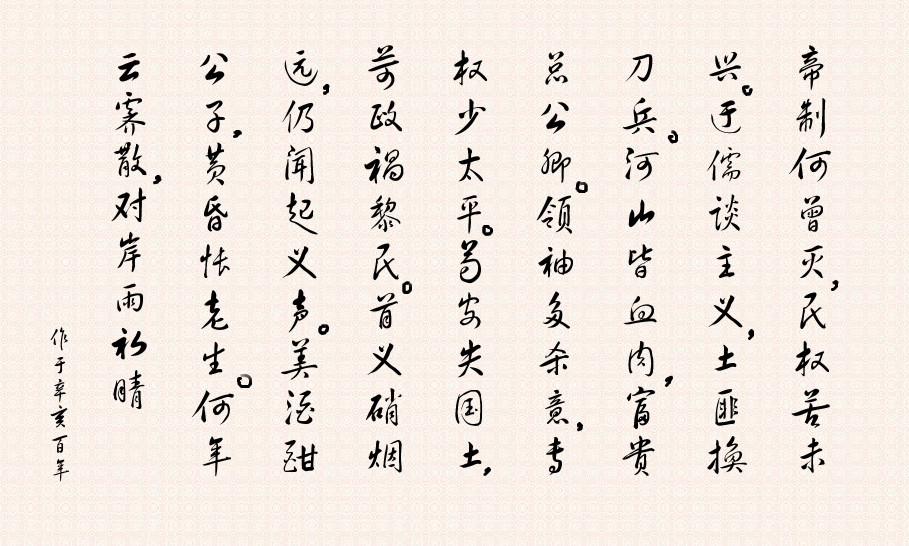 帝制何曾灭，民权苦未
兴。迂儒谈主义，土匪换
刀兵。河山皆血肉，富贵
总公卿。领袖多杀意，专
权少太平。苟安失国土，
苛政祸黎民。首义硝烟
远，仍闻起义声。美酒酣
公子，黄昏怅老生。何年
云雾散，对岸雨初晴
作于辛亥百年